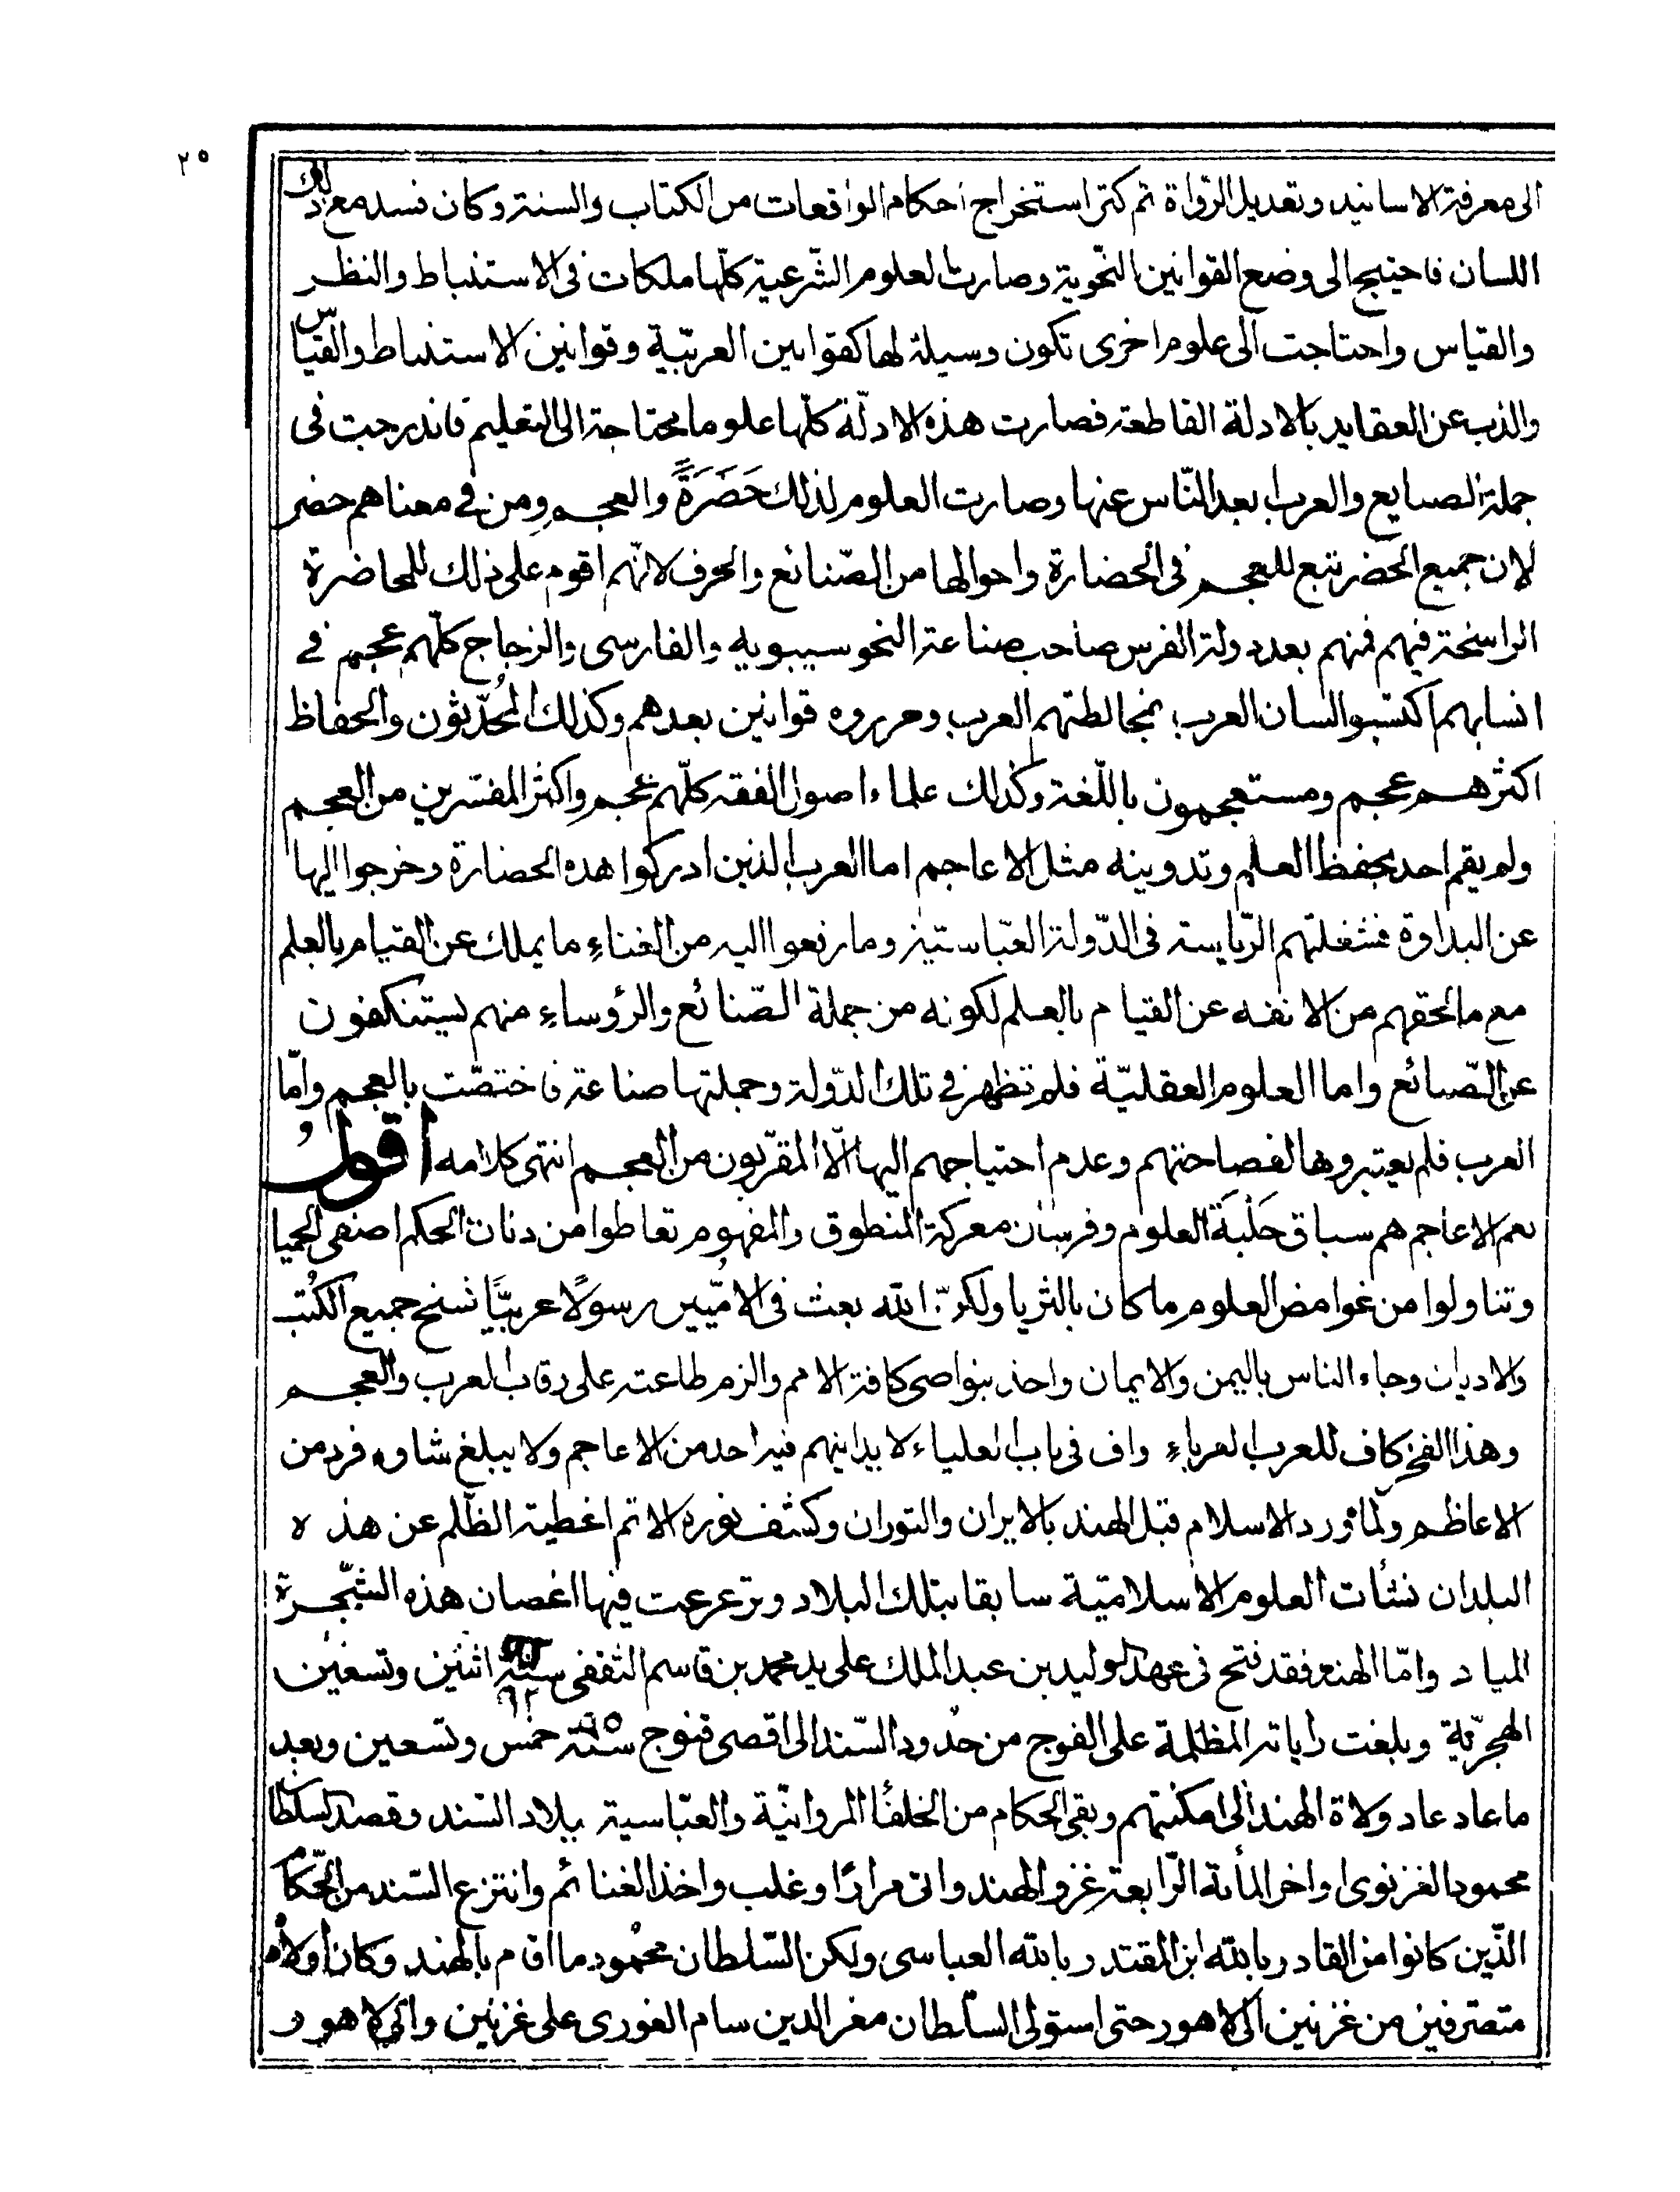 ٢٥
الى معرفة الاسانيد وتعديل الرواة ثم كثر استخراج احكام الواقعات من الكتاب والسنة وكان فسد مع ذلك
اللسان فاحتيج الى وضع القوانين النحوية وصارت العلوم الشرعية كلها ملكات فى الاستنباط والنظر
والقياس واحتاجت الى علوم اخرى تكون وسيلة لها كقوانين العربية وقوانين الاستنباط والقياس
والذب عن العقايد بالادلة القاطعة فصارت هذه الادلة كلها علوما محتاجة الى التعليم فاندرجت فى
جملة الصنايع والعرب ابعد الناس عنها وصارت العلوم لذلك حَضَرَةً والعجم ومن فى معناهم حضر
لان جميع الحضر تتبع للعجم فى الحضارة واحوالها من الصنائع والحرف لانهم اقوم على ذلك للحاضرة
الراسخة فيهم فمنهم بعد دولة الفرس صاحب صناعة النحو سيبويه والفارسى والزجاج كلهم عجم فى
انسابهم اكتسبوا لسان العرب بمخالطتهم العرب وحرروه قوانين بعدهم وكذلك المُحدّثون والحفاظ
اكثرهم عجم ومستعجمون باللغة وكذلك علماء اصول الفقه كلهم عجم واكثر المفسرين من العجم
ولم يقم احد بحفظ العلم وتدوينه مثل الاعاجم اما العرب الذين ادركوا هذه الحضارة وخرجوا اليها
عن البداوة فشغلتهم الرياسة فى الدولة العباسية وما رفعوا اليه من الغناء ما يملك عن القيام بالعلم
مع ما لحقهم من الانفه عن القيام بالعلم لكونه من جملة الصنائع والرؤساء منهم يستنكفون
عن الصنائع واما العلوم العقلية فلم تظهر فى تلك الدولة وحملتها صناعة فاختصت بالعجم واما
العرب فلم يعتبروها لفصاحتهم وعدم احتياجهم اليها الا المقربون من العجم انتهى كلامه اقولُ
نعم الاعاجم هم سباق حَلْبَة العلوم وفرسان معركة المنطوق والمفهوم تعاطوا من دنان الحكم اصفى الحميا
وتناولوا من غوامض العلوم ما كان بالثريا ولكن الله بعث فى الاميين رسولًا عربيًا نسخ جميع الكُتب
والاديان وجاء الناس باليمن والايمان واخذ بنواصى كافة الامم والزم طاعته على رقاب العرب والعجم
وهذا الفخر كاف للعرب العرباء واف فى باب العلياء لا يدانيهم فيه احد من الاعاجم ولا يبلغ شاوه فرد من
الاعاظم ولما ورد الاسلام قبل الهند بالايران والتوران وكشف نوره الاتم اغطية الظلم عن هذه
البلدان نشأت العلوم الاسلامية سابقا بتلك البلاد وترعرعت فيها اغصان هذه الشجرة
المياد واما الهند فقد فتح فى عهد الوليد بن عبد الملك على يد محمد بن قاسم الثقفى سنة ٩٢ اثنتين وتسعين
الهجرية وبلغت راياته المظلمة على الفوج من حُدود السند الى اقصى قنوج سنة ٩٥ خمس وتسعين وبعد
ما عاد عاد ولاة الهند الى امكنتهم وبقى الحكام من الخلفا المروانية والعباسية ببلاد السند وقصد السلطان
محمود الغزنوى اواخر المأية الرابعة غزو الهند واتى مرارًا وغلب واخذ الغنائم وانتزع السند من الحكام
الذين كانوا من القادر بالله ابن المقتدر بالله العباسى ولكن السلطان محمود ما اقام بالهند وكان اولاده
متصرفين من غزنين الى لاهور حتى استولى السلطان معز الدين سام الغورى على غزنين واتى لاهور